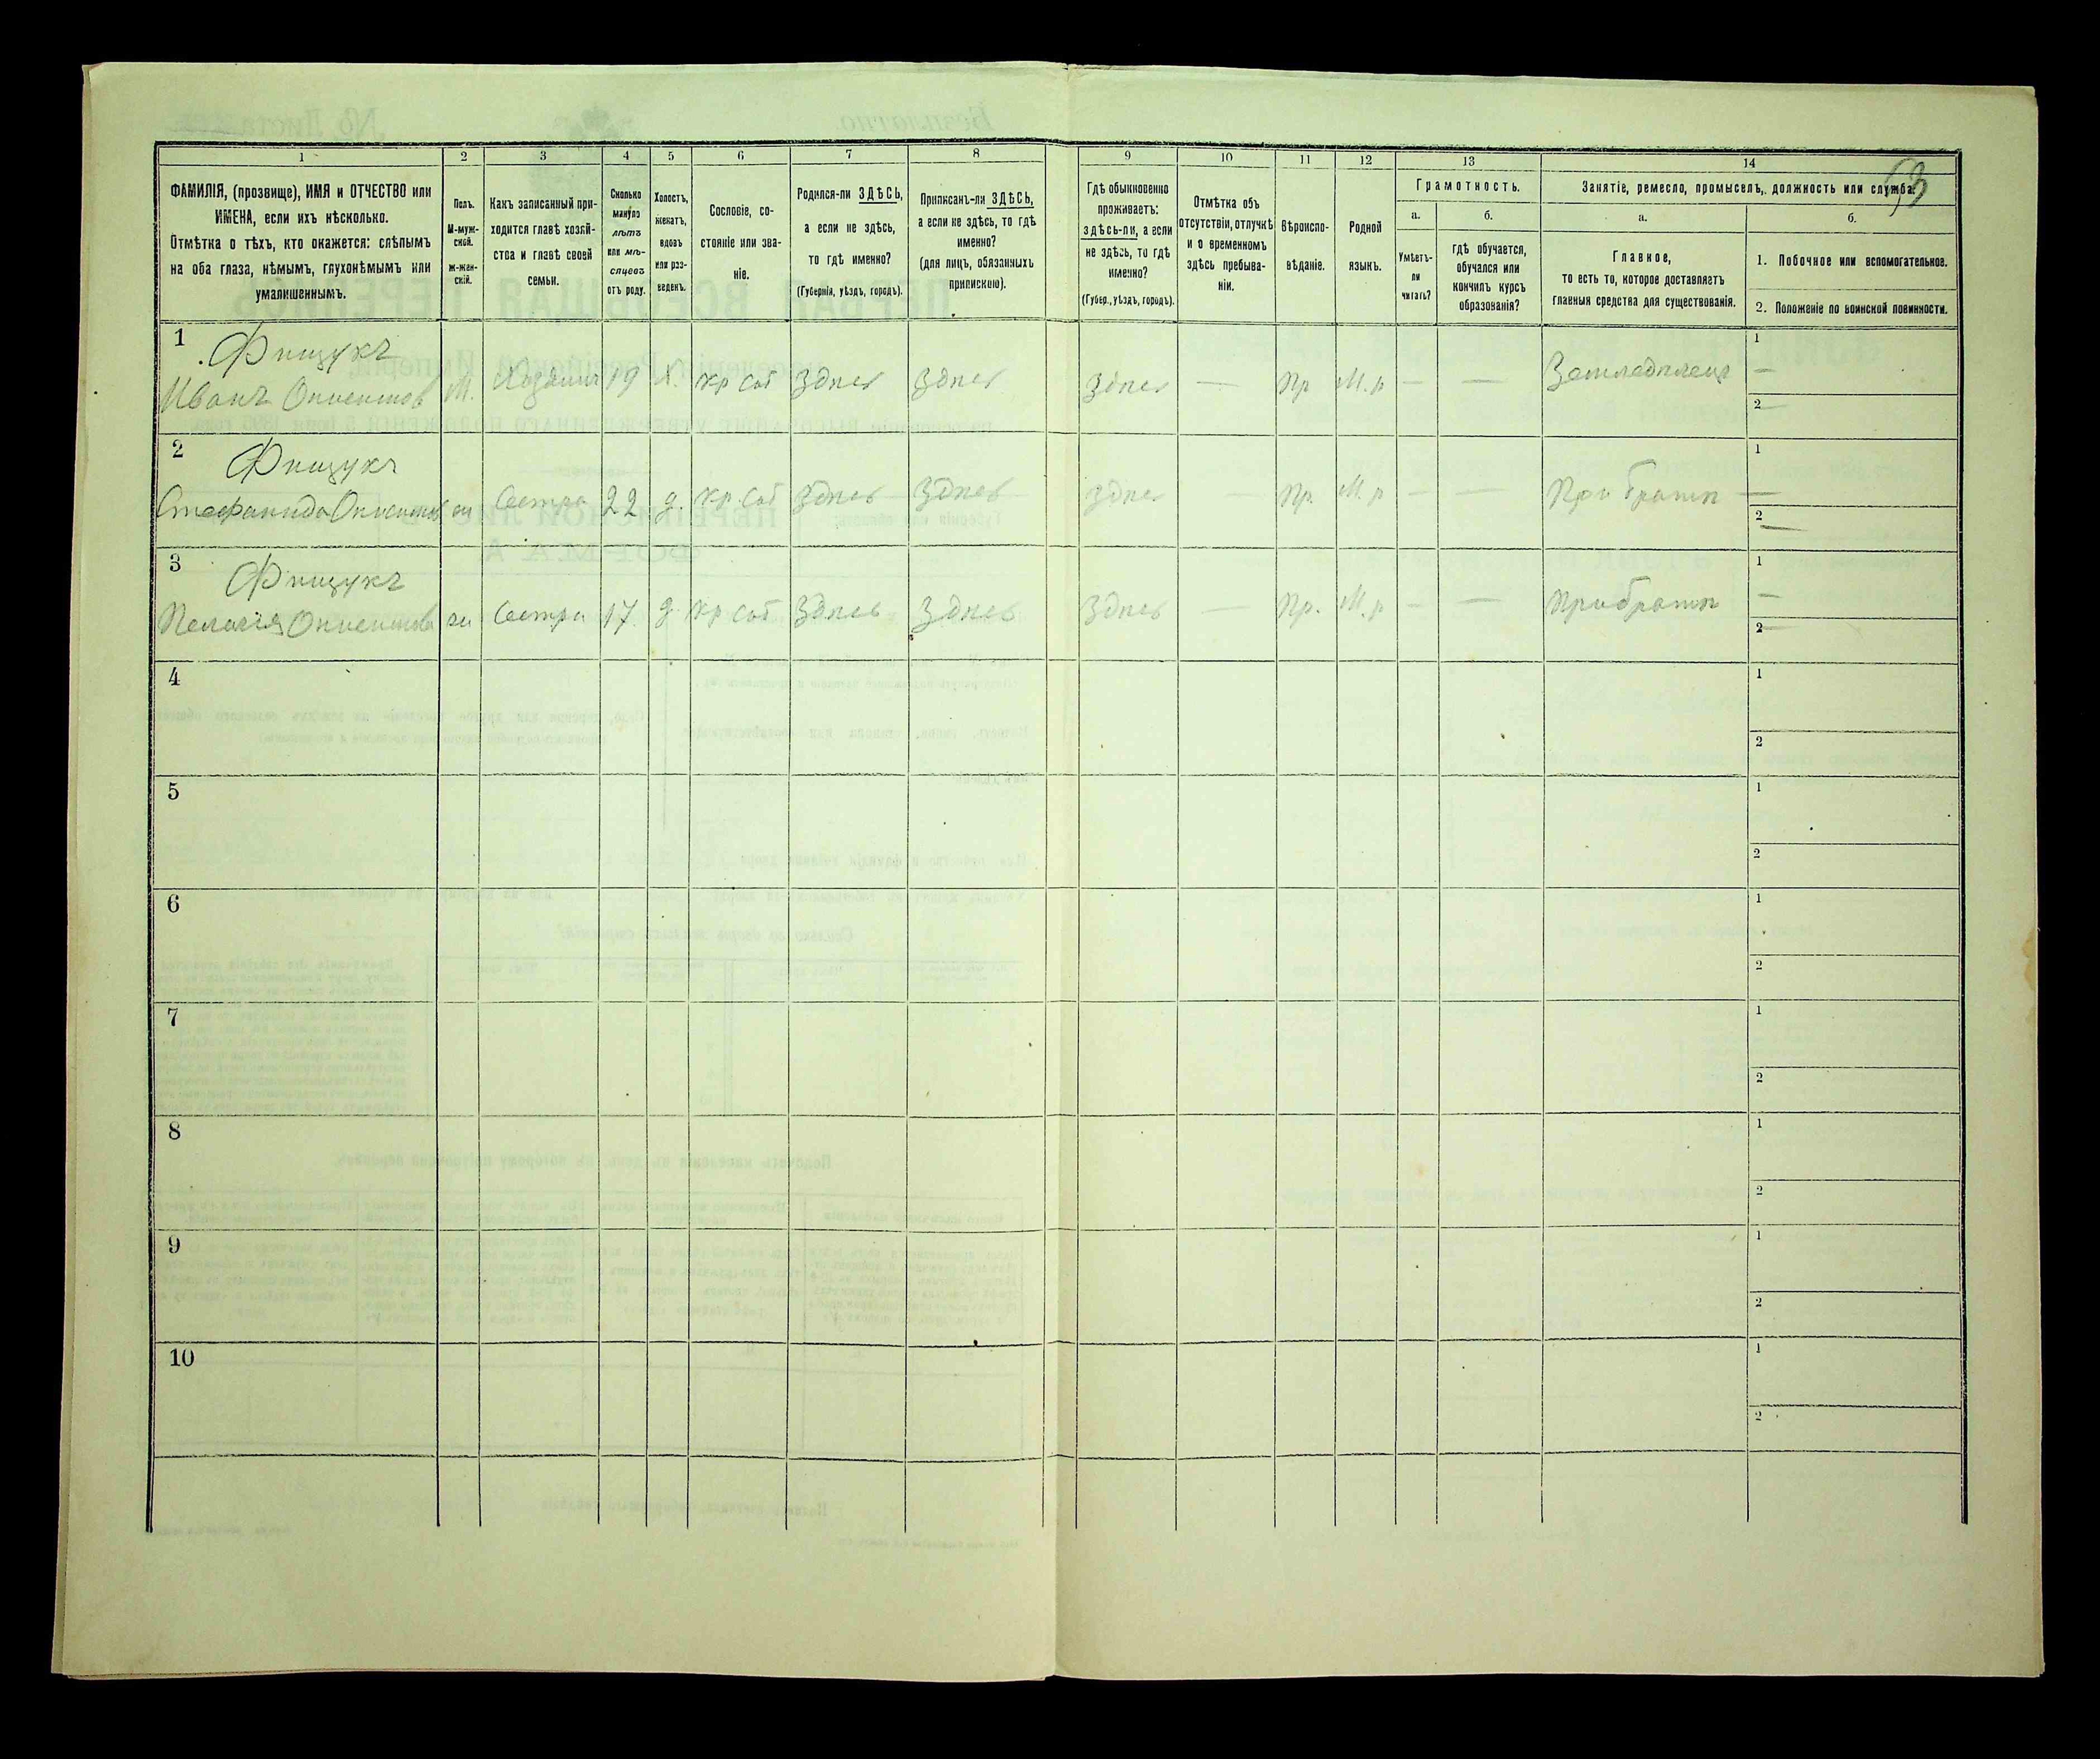 53
1 2 3 4 5 6 7 8 9 10 11 12 13 14
ФАМИЛІЯ, (прозвище), ИМЯ и ОТЧЕСТВО или
ИМЕНА, если ихъ нѣсколько.
Отмѣтка о тѣхъ, кто окажется: слѣпымъ
на оба глаза, нѣмымъ, глухонѣмымъ или
умалишеннымъ.
Полъ.
М-муж-
ской.
Ж-жен-
скій.
Какъ записанный при-
ходится главѣ хозяй-
ства и главѣ своей
семьи.
Сколько
минуло
лѣтъ
или мѣ-
сяцевъ
отъ роду.
Холостъ,
женатъ,
вдовъ
или раз-
веденъ.
Сословіе, со-
стояніе или зва-
ніе.
Родился-ли ЗДѢСЬ,
а если не здѣсь,
то гдѣ именно?
(Губернія, уѣздъ, городъ).
Приписанъ-ли ЗДѢСЬ,
а если не здѣсь, то гдѣ
именно?
(для лицъ, обязанныхъ
припискою).
Гдѣ обыкновенно
проживаетъ:
здѣсь-ли, а если
не здѣсь, то гдѣ
именно?
(Губер., уѣздъ, городъ).
Отмѣтка объ
отсутствіи, отлучкѣ
и о временномъ
здѣсь пребыва-
ніи.
Вѣроиспо-
вѣданіе.
Родной
языкъ.
Грамотность.
а.
Умѣетъ-
ли
читать?
б.
гдѣ обучается,
обучался или
кончилъ курсъ
образованія?
Занятіе, ремесло, промыселъ, должность или служба.
а.
Главное,
то есть то, которое доставляетъ
главныя средства для существованія.
б.
1. Побочное или вспомогательное.
2. Положеніе по воинской повинности.
1 Фищукъ 1
Иванъ М. Хозяинъ 19 Х. Кр соб Здѣсь Здѣсь Здѣсь — Пр М.р — — Земледѣлецъ —
2 —
2 Фищукъ 1
Стефанида ж Сестра 22 д. Кр. соб Здѣсь Здѣсь Здѣсь — Пр. М.р — — При братѣ —
2 —
3 Фищукъ 1
Пелагія ж Сестра 17 д Кр соб Здѣсь Здѣсь Здѣсь — Пр. М.р — — При братѣ —
2 —
4 1
2
5 1
2
6 1
2
7 1
2
8 1
2
9 1
2
10 1
2